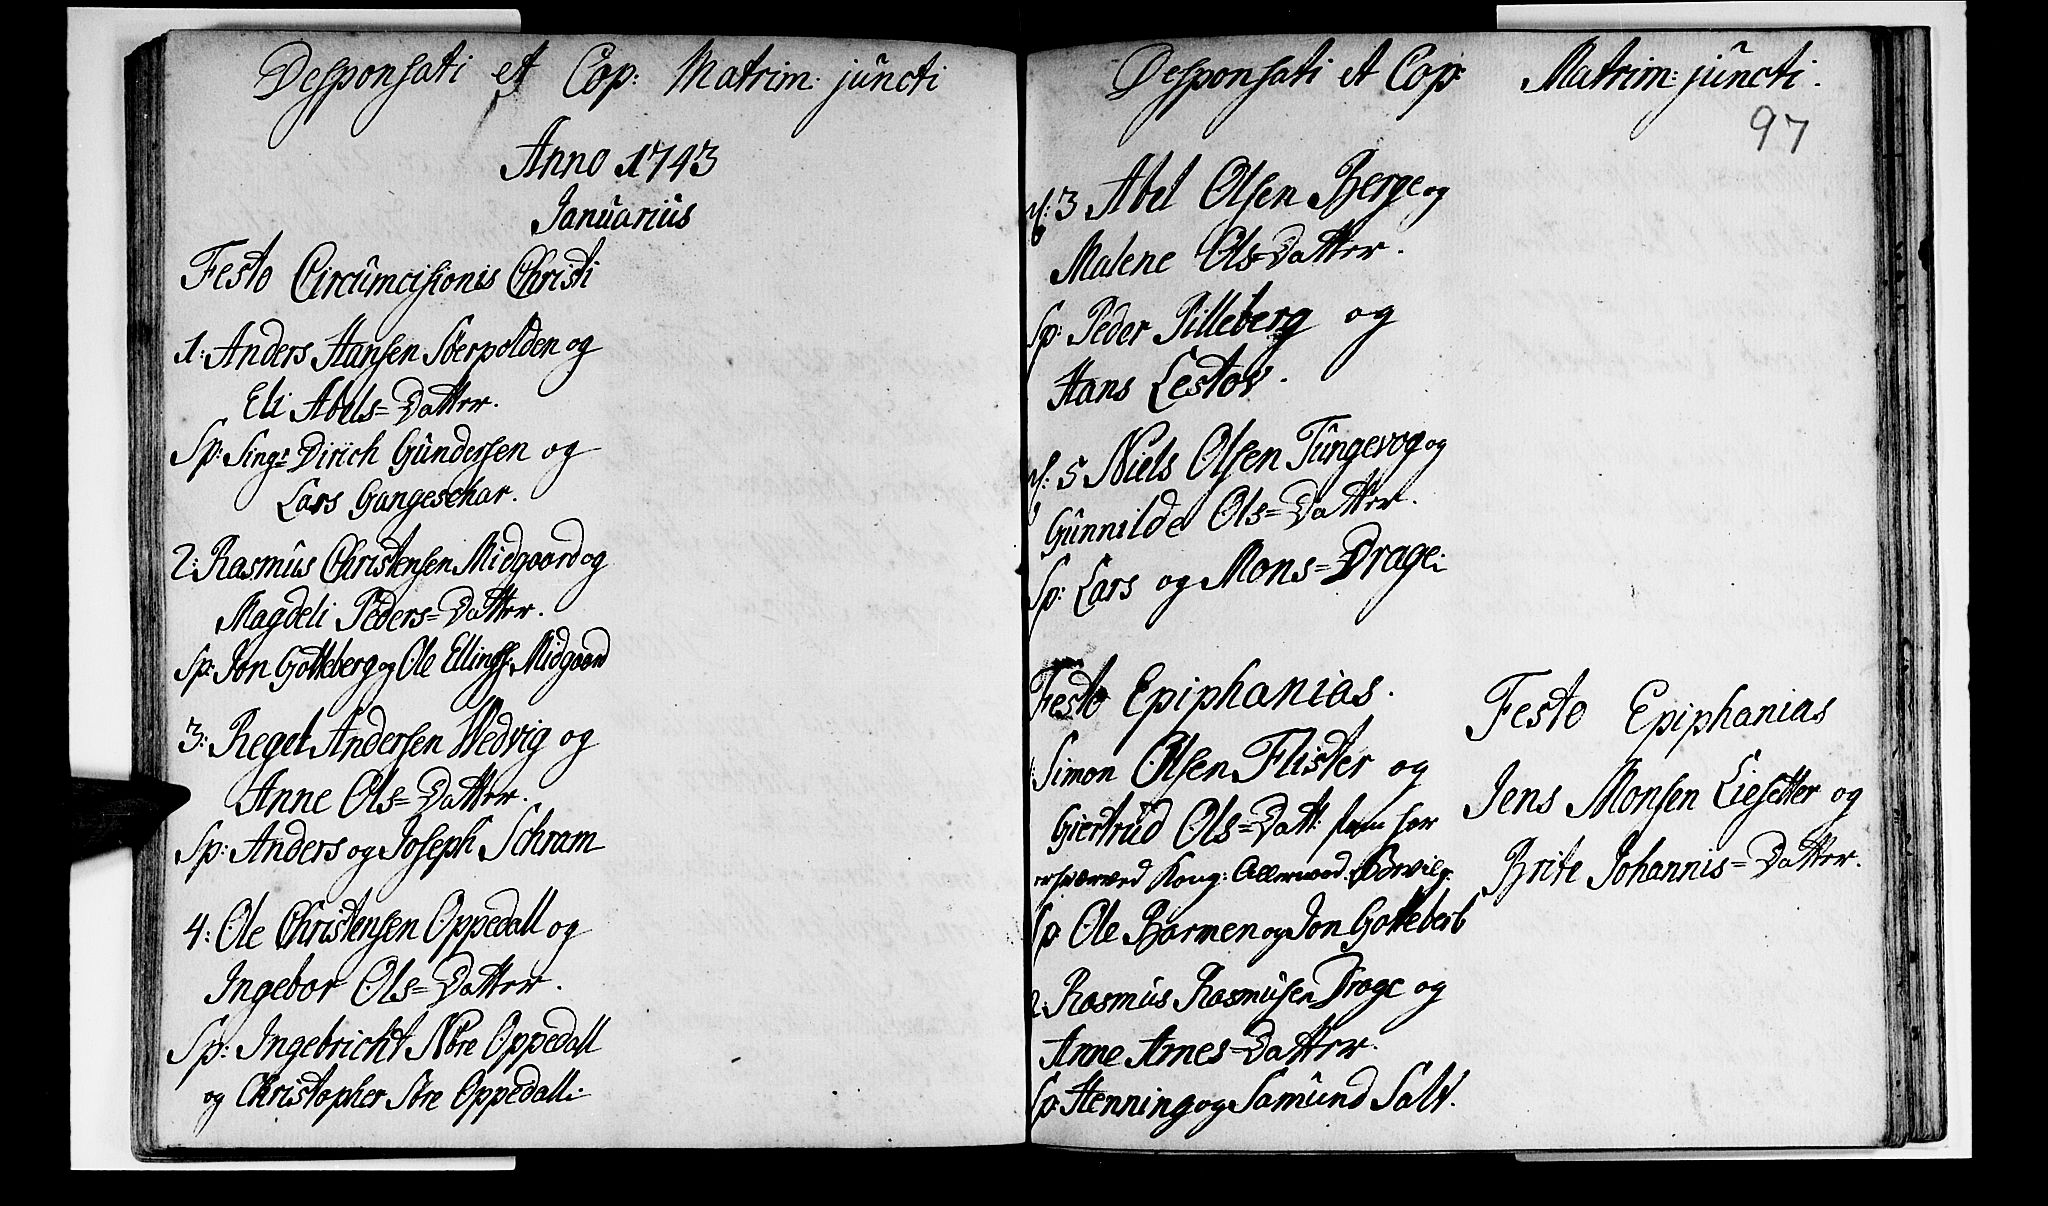 Desponsati et Cop: Matrim. juncti
Anno 1743
Januarius
Festo Circumcisionis Christi
1: Anders Hansen Söerpolden og
Eli Abels=Datter.
Sp: Singr Dirich Gundersen og
Lars Gangeschar.
2: Rasmus Christensen Midgaard og
Magdeli Peders=Datter.
Sp: Jon Gotteberg og Ole Ellings: Midgaard
3: Regel Andersen Wedvig og
Anne Ols=Datter.
Sp: Anders og Joseph Schram
4: Ole Christensen Oppedall og
Ingebor Ols=Datter.
Sp: Ingebricht Nöre Oppedall
og Christopher Söre Oppedall:
Desponsati et Cop: Matrim: juncti.
97
3 Abel Olsen Berge og
Malene Ols=Datter.
Sp: Peder Pilleberg og
Hans Lestov.
5 Niels Olsen Tungevog og
Gunnilde Ols=Datter.
Sp: Lars og Mons=Drage:
Festo Epiphanias.
Simon Olsen Flister og
Giertrud Ols=Datt: som har
erhværved Kong: Allernaad. Bevilg:
Sp: Ole Barmen og Jon Gotteberb
2 Rasmus Rasmusen Drage og
Anne Arnes=Datter.
Sp: Henning og Samund Salt.
Festo Epiphanias
Jens Monsen Liesetter og
Brite Johannis=Datter.